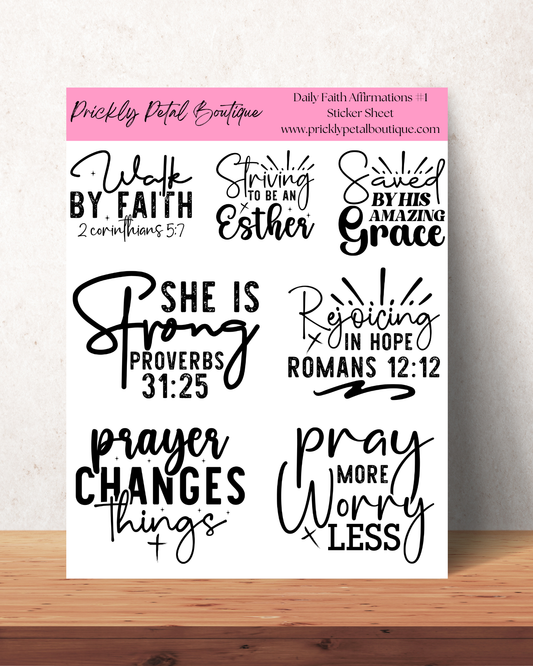 Prickly Petal Boutique
Daily Faith Affirmations #1
Sticker Sheet
www.pricklypetalboutique.com
Walk
BY FAITH
2 corinthians 5:7
Striving
TO BE AN
Esther
Saved
BY HIS
AMAZING
Grace
SHE IS
Strong
PROVERBS
31:25
Rejoicing
IN HOPE
ROMANS 12:12
prayer
CHANGES
things
pray
MORE
Worry
LESS